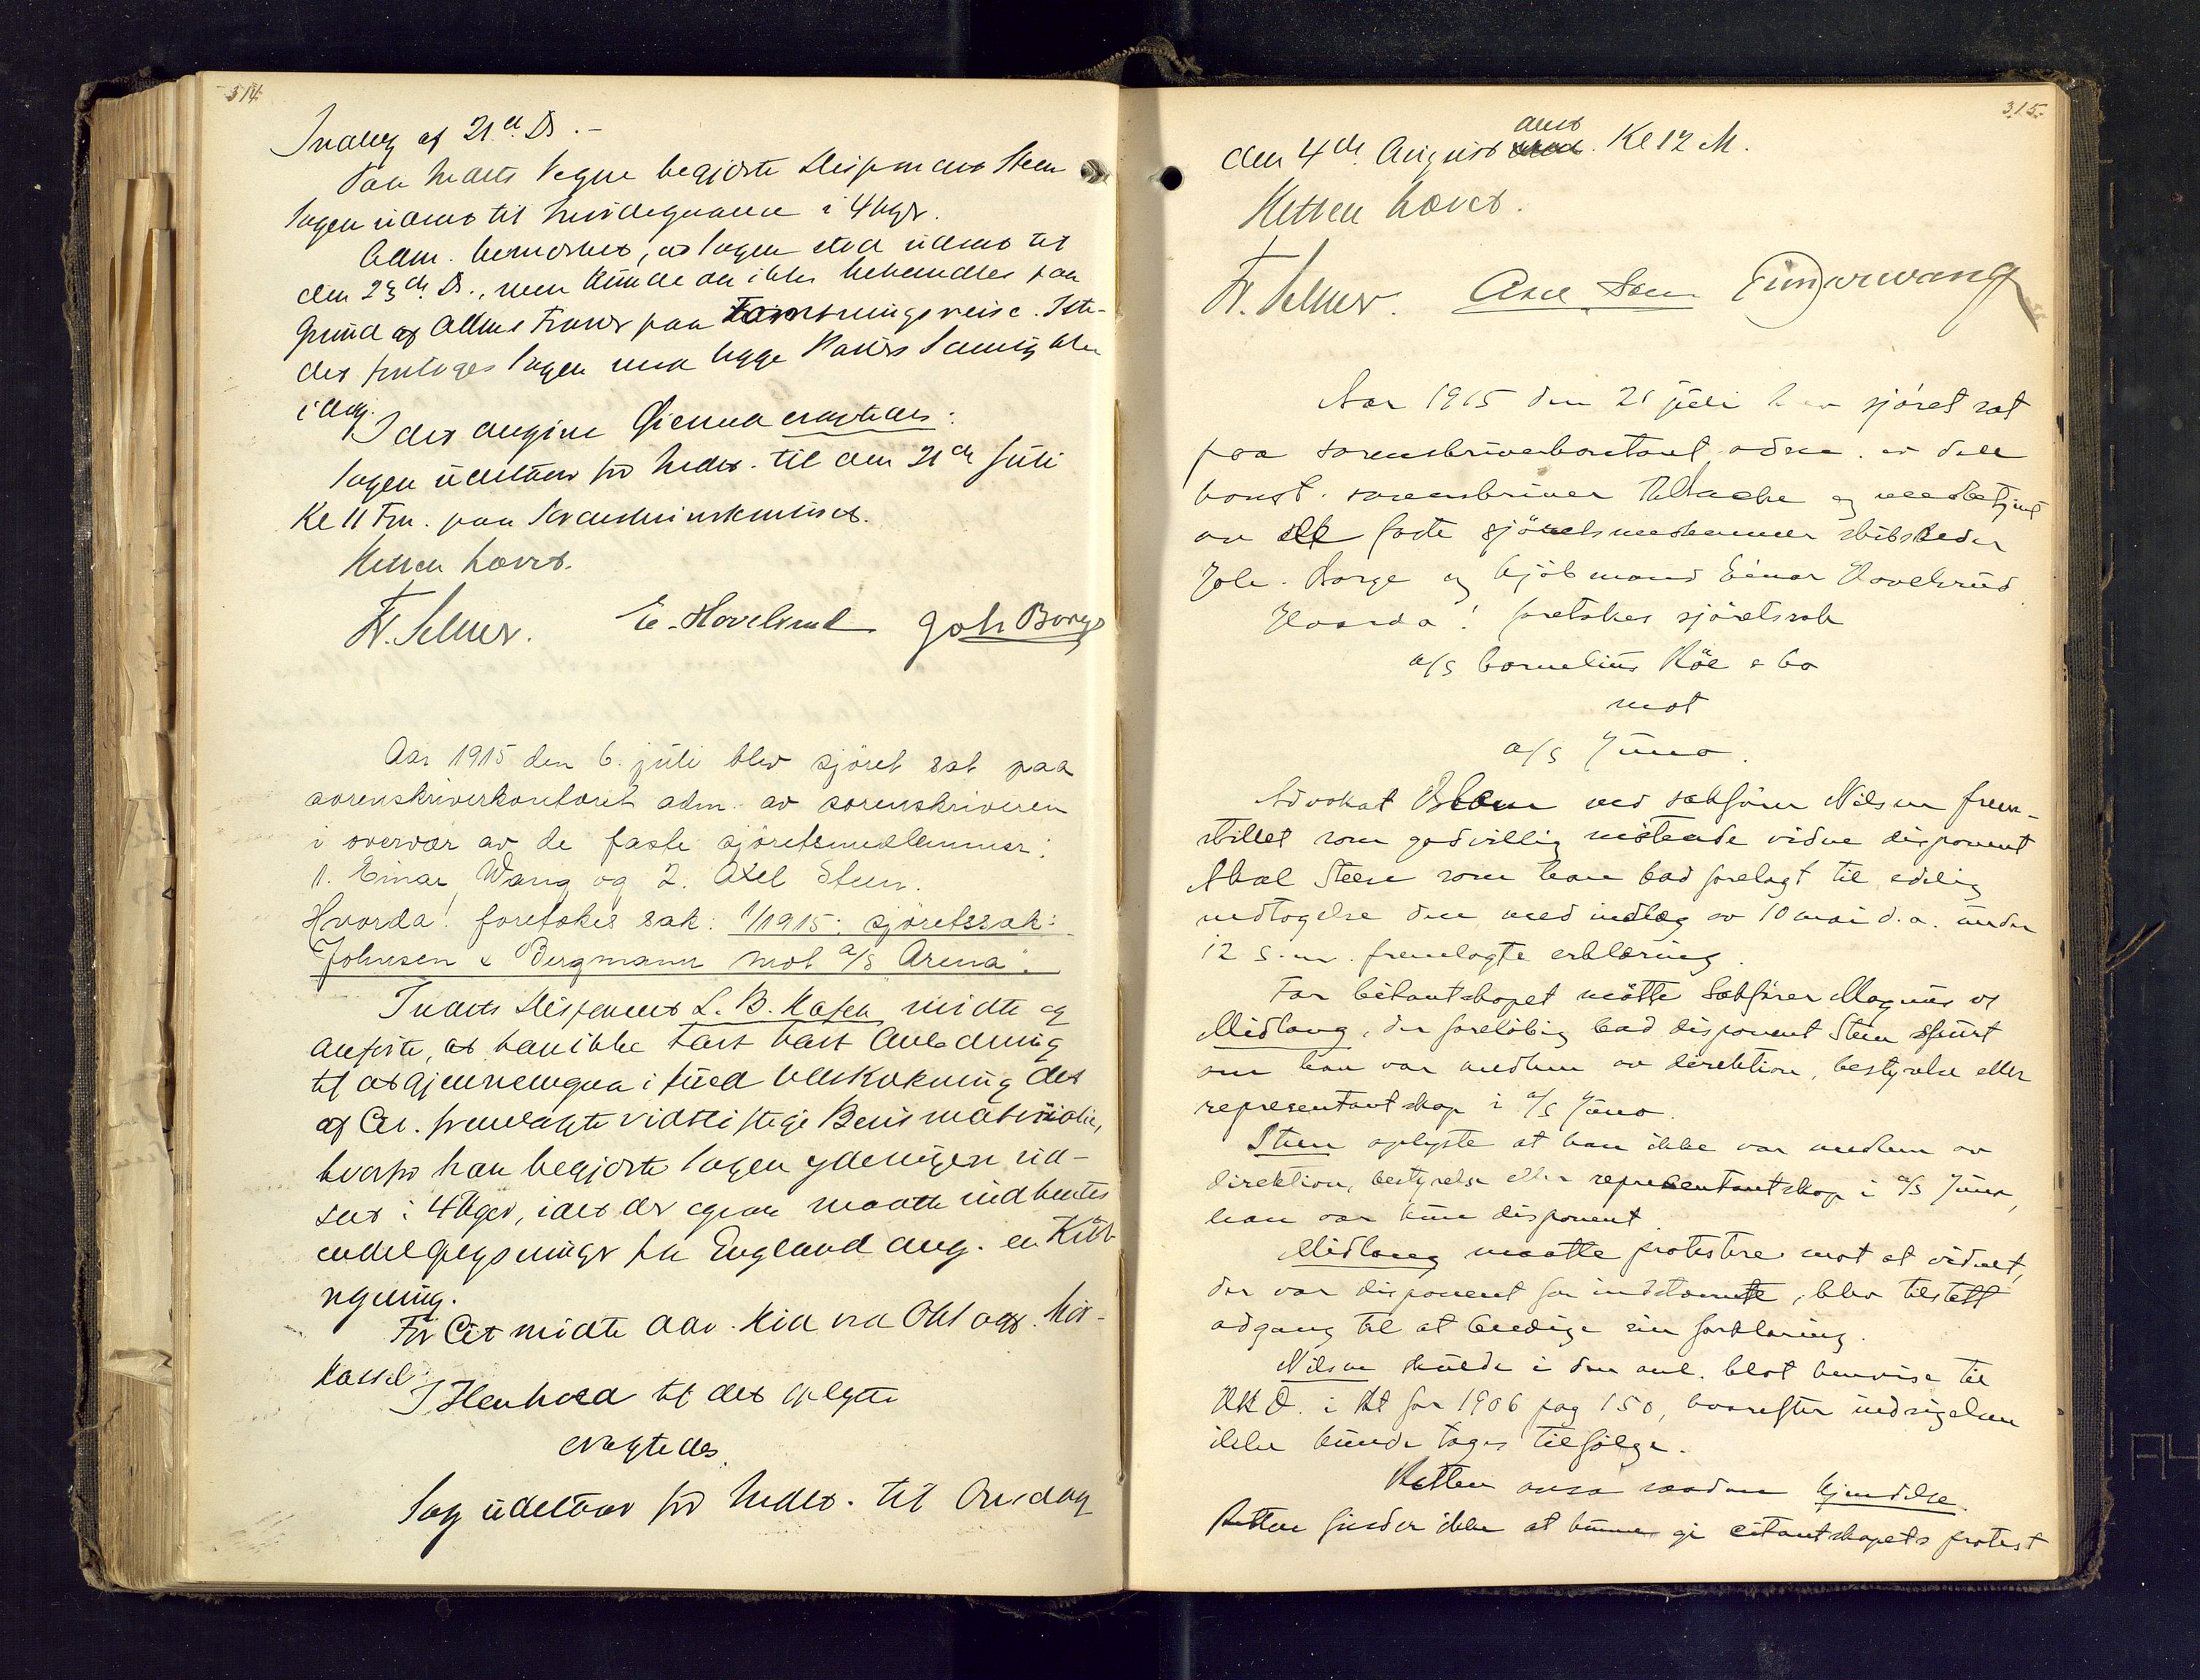 314
Indlæg af 21de Ds.-
Paa Indcts Vegne begjærte Disponent Steen
Sagen udsat til Imødegaaelse i 4 Uger.
Adm. bemærket, at Sagen stod udsat til
den 23de Ds., men kunde da ikke behandles paa
Grund af Adms Fravær paa Forretningsreise. Iste-
det foretages Sagen med begge Parters Samtykke
idag.
I det angivne Øiemed eragtedes:
Sagen udstaar for Indct. til den 21de Juli
Kl 11 Fm. paa Sorenskriverkontoret.
Retten hævet.
E. Hovelsrud Joh Borge
Aar 1915 den 6. juli blev sjöret sat paa
sorenskriverkontoret adm. av sorenskriveren
i overvær av de faste sjöretsmedlemmer:
1. Einar Wang og 2. Axel Steen.
Hvorda! foretokes sak: 1/1915: sjöretssak:
Johnsen & Bergmann mot a/s Arena.
Indcts Disponent L. B. mödte og
anförte, at han ikke havt Anledning
til at gjennemgaa i fuld Udstrækning det
af Cit. fremlagte vidtløftige Bevismateriale,
hvorfor han begjærte Sagen yderligere ud-
sat i 4 Uger, idet der ogsaa maatte indhentes
endel Oplysninger fra England ang. en Kul-
regning.
For Cit mödte Adv.
I Henhold til det oplyste
eragtedes
Sag udstaar for Indct. til Onsdag
315.
den 4de August anst Kl 12 M.
Retten hævet.
Axel Steen Einar Wang
Aar 1915 den 21 juli blev sjöret sat
paa sorenskriverkontoret adm. av den
konst. sorenskriver og medbetjent
av de faste sjöretsmedlemmer skibsreder
Joh. Borge og kjöbmand Einar Hovelsrud
Hvorda! foretokes sjöretssak
a/s Cornelius Röe & Co
mot
a/s Juno.
Advokat Blom ved sakförer Nilsen frem-
stillet som godvillig mötende vidne disponent
Aksel Steen som han bad forelagt til edelig
vedtagelse den med indlæg av 10 mai d.a. under
12 s.m. fremlagte erklæring.
For citantskapet mötte Sakförer Magnus
Midlang, der foreløbig bad disponent Steen spurt
om han var medlem av direktion, bestyrelse eller
representantskap i a/s Juno.
Steen oplyste at han ikke var medlem av
direktion, bestyrelse eller representantskap i a/s Juno,
han var kun disponent.
Midlang maatte protestere mot at vidnet,
der var disponent for indstevnte, blev tilstett
adgang til at beedige sin forklaring.
Nilsen skulde i den anl. blot henvise til
HRD. i Rt for 1906 pag 150, hvorefter indsigelsen
ikke kunde tages tilfölge.
Retten avsa saadan kjendelse
Retten finder ikke at kunne gi citantskapets protest